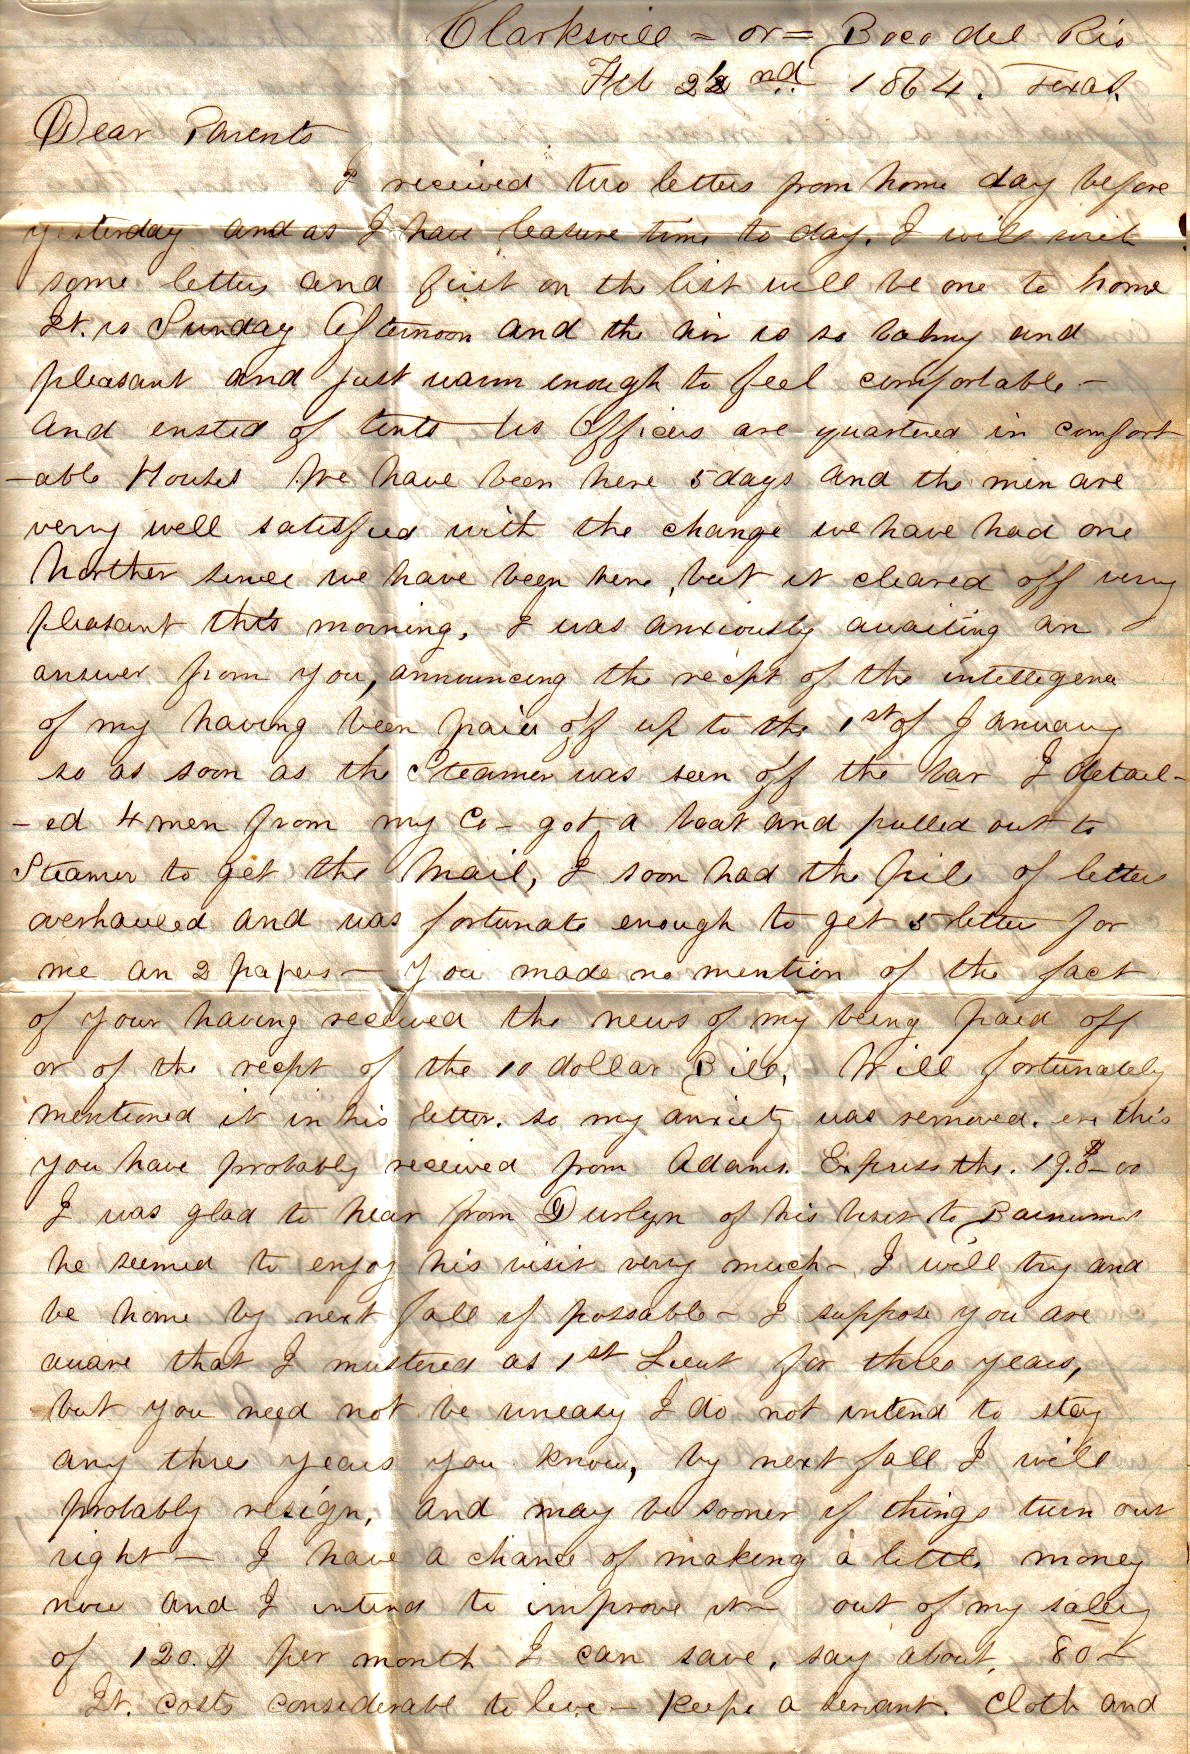 Clarksvill = or = Boco del Rio
Feb 22nd 1864. Texas.
Dear Parents
I received two letters from home day before
yesterday and as I have leasure time to day, I will writ
some letters and first on the list will be one to home
It is Sunday Afternoon and the air is so balmy and
pleasant and just warm enough to feel comfortable -
and insted of tents us Officers are quartered in comfort
-able Houses We have been here 5 days and the men are
verry well satisfied with the change we have had one
Norther since we have been here, but it cleared off very
pleasant this morning. I was anxiously awaiting an
answer from you, announcing the recpt of the intelligence
of my having been paid off up to the 1st of January
so as soon as the Steamer was seen off the bar I detail-
-ed 4 men from my Co - got a boat and pulled out to
Steamer to get the Mail, I soon had the pile of letters
overhauled and was fortunate enough to get 5 letters for
me an 2 papers - You made no mention of the fact
of your having received the news of my being paid off
or of the recpt of the 10 dollar Bill. Will fortunately
mentioned it in his letter. so my anxiety was removed. ere this
you have probably received from Adams Express the
I was glad to hear from of his visit to
he seemed to enjoy his visit very much - I will try and
be home by next fall if possable - I suppose you are
aware that I mustered as 1st Lieut for three years,
but you need not be uneasy I do not intend to stay
any three years you know, by next fall I will
probably resign, and may be sooner if things turn out
right - I have a chance of making a little money
now and I intend to improve it - out of my salery
of 120.$ per month I can save, say about, 80 -
It. costs considerable to live - Keepe a servant. Cloth and